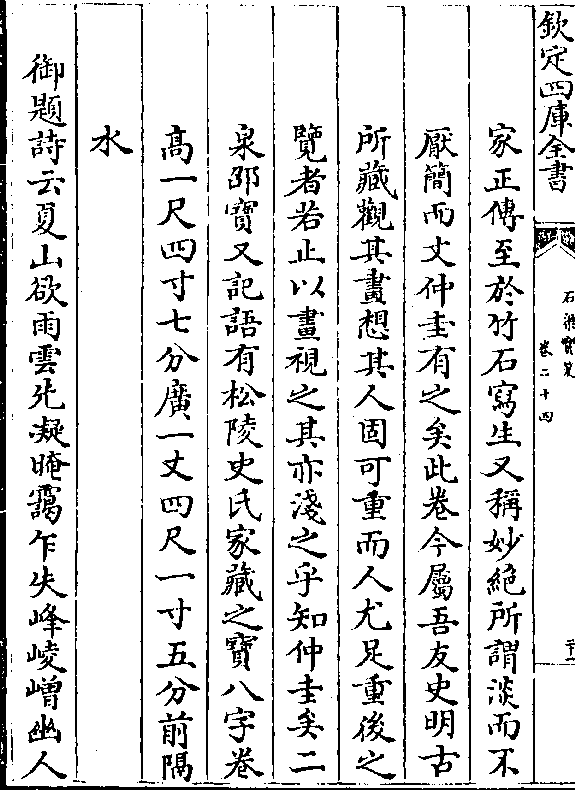 欽定四庫全書
石渠寶笈
卷二十四
二十一
家正傳至於竹石寫生又稱妙絶所謂淡而不
厭簡而文仲圭有之矣此卷今屬吾友史明古
所藏觀其畫想其人固可重而人尤足重後之
覽者若止以畫視之其亦淺之乎知仲圭矣二
泉邵寶又記語有松陵史氏家藏之寶八字卷
高一尺四寸七分廣一丈四尺一寸五分前隔
水
御題詩云夏山欲雨雲先凝晻靄乍失峰崚嶒幽人